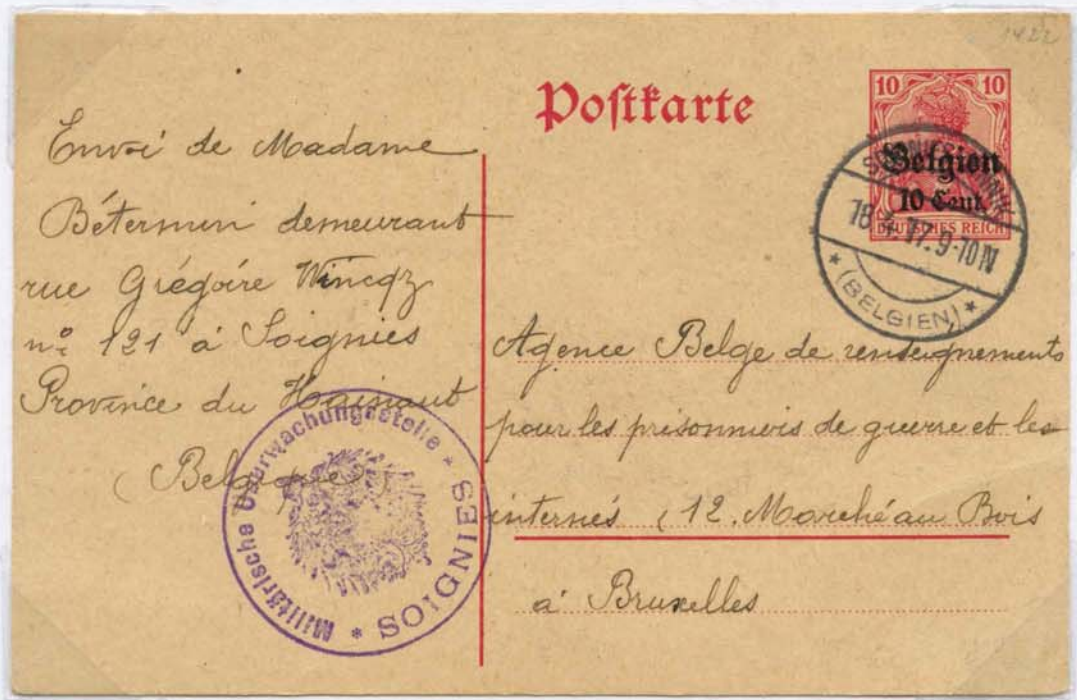 1422
Postkarte
10 10
Belgien
10 Cent.
DEUTSCHES REICH
SOIGNIES
18. 17. 9-10 N
* (BELGIEN) *
Envoi de Madame
Bétermin demeurant
rue Grégoire Wincqz
n° 121 à Soignies
Province du Hainaut
(Belgique)
Militärische Überwachungsstelle * SOIGNIES *
Agence Belge de renseignements
pour les prisonniers de guerre et les
internés, 12. Marché au Bois
à Bruxelles